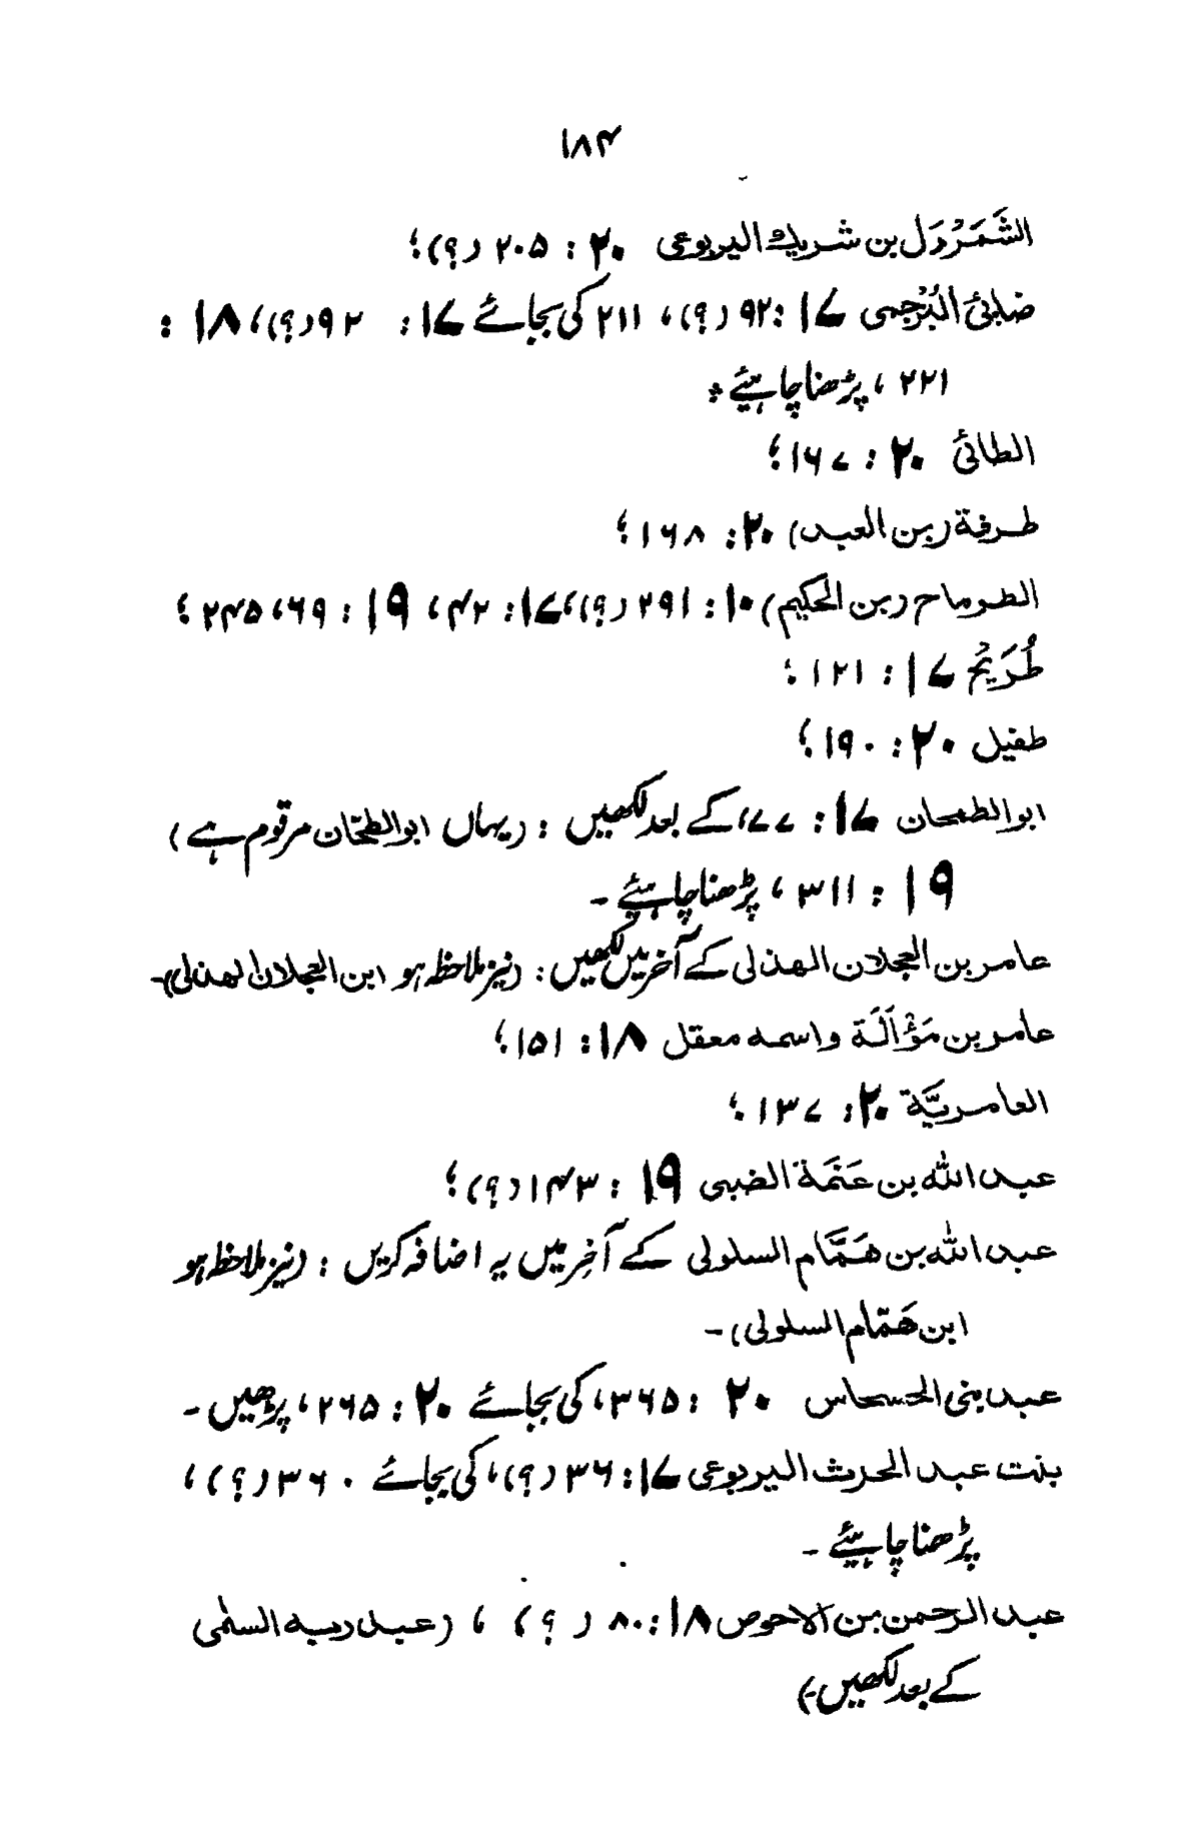 ۱۸۴
الشَمَرْدَل بن شريك اليربوعى ۲۰ : ۲۰۵ (؟)؛
ضابئ البُرْجمى ۱۷ : ۹۲ (؟)، ۲۱۱ کی بجائے ۱۷ : ۹۲ (؟)، ۱۸ :
۲۲۱، پڑھنا چاہیئے ؛
الطائئ ۲۰ : ۱۶۷؛
طرفة (بن العبد) ۲۰ : ۱۶۸؛
الطرماح (بن الحكيم) ۱۰ : ۲۹۱ (؟)، ۱۷ : ۴۲، ۱۹ : ۶۹، ۲۴۵؛
طُرَيْح ۱۷ : ۱۲۱؛
طفيل ۲۰ : ۱۹۰؛
ابو الطمحان ۱۷ : ۷۷، کے بعد لکھیں : (یہاں ابو الطحّان مرقوم ہے)
۱۹ : ۳۱۱، پڑھنا چاہیئے ۔
عامر بن العجلان الهذلى کے آخر میں لکھیں : (نیز ملاحظہ ہو ابن العجلان الهذلى)۔
عامر بن مَؤْأَلَة واسمه معقل ۱۸ : ۱۵۱؛
العامريَّة ۲۰ : ۱۳۷؛
عبد الله بن عَنَمَة الضبى ۱۹ : ۱۴۳ (؟)؛
عبد الله بن هَمَّام السلولى کے آخِر میں یہ اضافہ کریں : (نیز ملاحظہ ہو
ابن هَمّام السلولى) ۔
عبد بنى الحسحاس ۲۰ : ۳۶۵، کی بجائے ۲۰ : ۲۶۵، پڑھیں ۔
بنت عبد الحرث اليربوعى ۱۷ : ۳۶ (؟)، کی بجائے ۳۶۰ (؟)،
پڑھنا چاہیئے ۔
عبد الرحمن بن الاحوص ۱۸ : ۸۰ (؟)، (عبد ربه السلمى
کے بعد لکھیں۔)